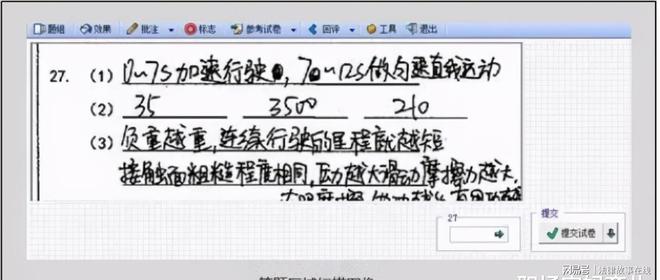 题组 效果 批注 标志 参考试卷 回评 工具 退出
27. (1) 0~7s加速行驶, 7~12s做匀速直线运动
(2) 35 3500 210
(3) 负重越重,连续行驶的里程就越短
接触面粗糙程度相同,压力越大滑动摩擦力越大,
27 提交
提交试卷
网易号 | 法律故事在线